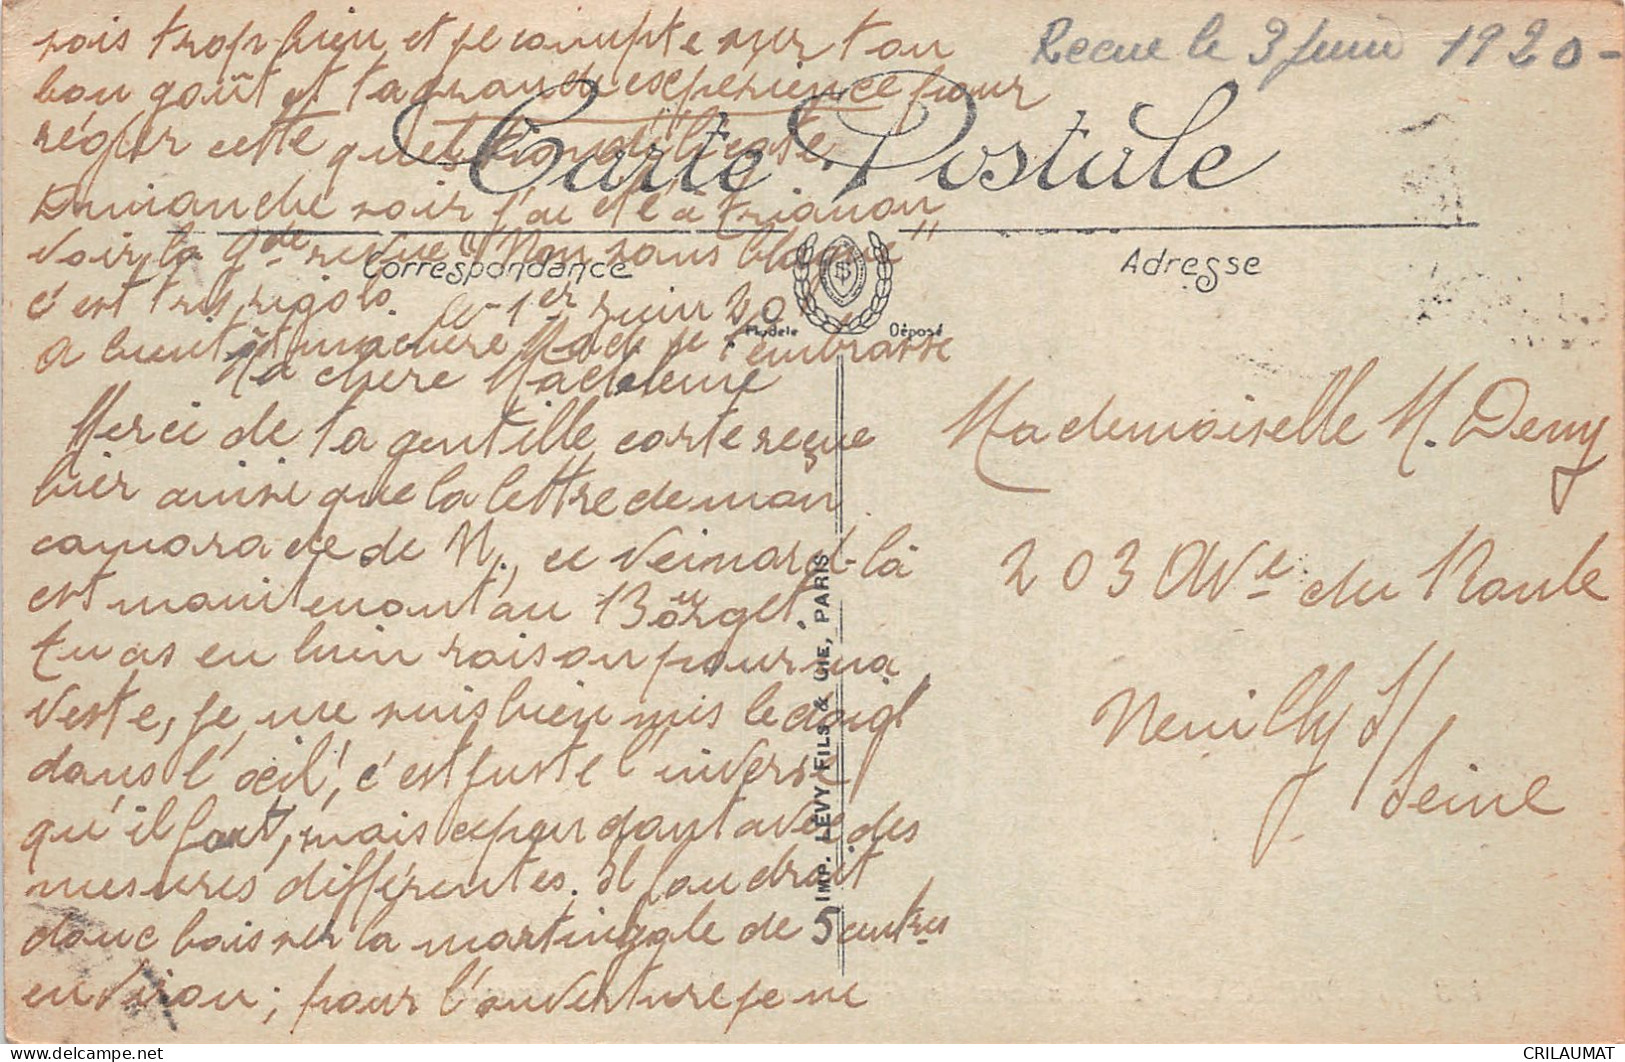 sais trop bien et je compte sur ton
bon goût et ta grande expérience pour
régler cette question délicate,
Dimanche soir j'ai été à Trianon
voir la gde revue "Non sans blague"
c'est très rigolo.
a bientôt ma chère Mad je t'embrasse
Recue le 3 juin 1920-
Carte Postale
Correspondance
Adresse
Modèle Déposé
le 1er juin 20
Ma chère Madeleine
Merci de ta gentille carte reçue
hier ainsi que la lettre de mon
camarade de N., ce veinard-là
est maintenant au Börget.
tu as eu bien raison pour ma
veste, je me suis bien mis le doigt
dans l'œil, c'est juste l'inverse
qu'il faut, mais cependant avec des
mesures différentes. Il faudrait
donc baisser la martingale de 5 centres
environ; pour l'ouverture je ne
IMP. LÉVY FILS & CIE, PARIS
Mademoiselle M. Demy
203 Ave du Roule
Neuilly s/
Seine
CRILAUMAT
delcampe.net